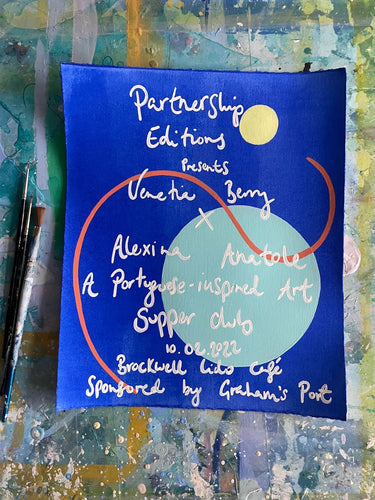 Partnership
Editions
Presents
Venetia Berry
X
Alexina Anatole
A Portuguese-inspired Art
Supper club
10.02.2022
Brockwell Lido Café
Sponsored by Graham's Port